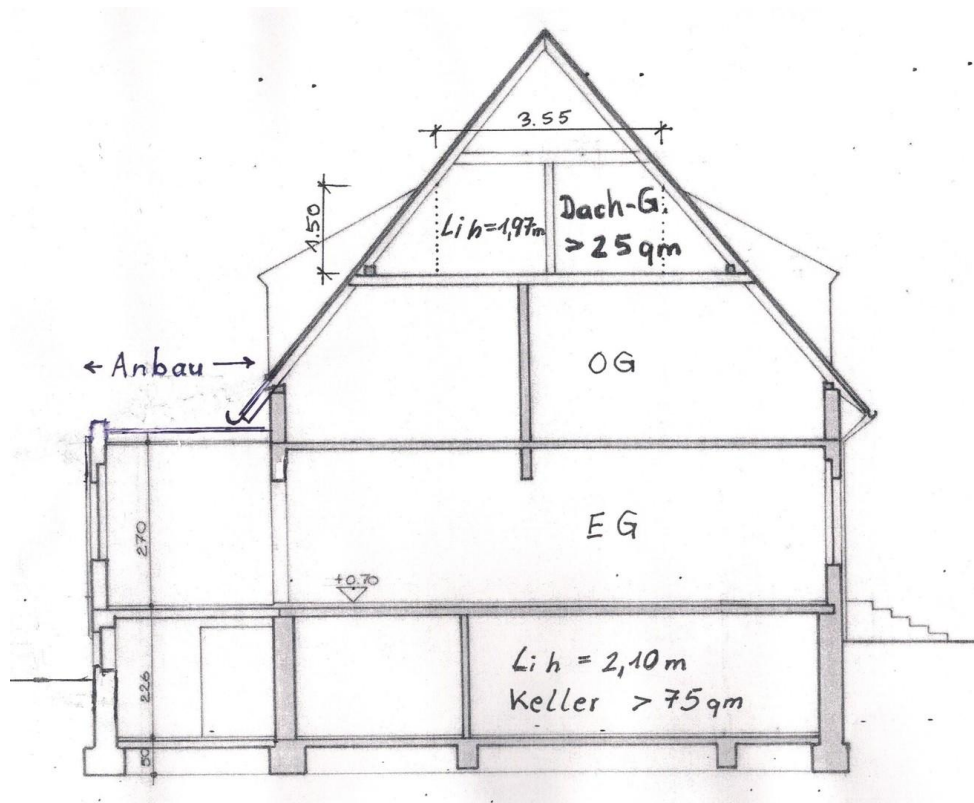 3.55
1.50
Lih=1,97m
Dach-G.
> 25 qm
← Anbau →
OG
270
EG
+0.70
226
Lih = 2,10 m
Keller > 75 qm
50